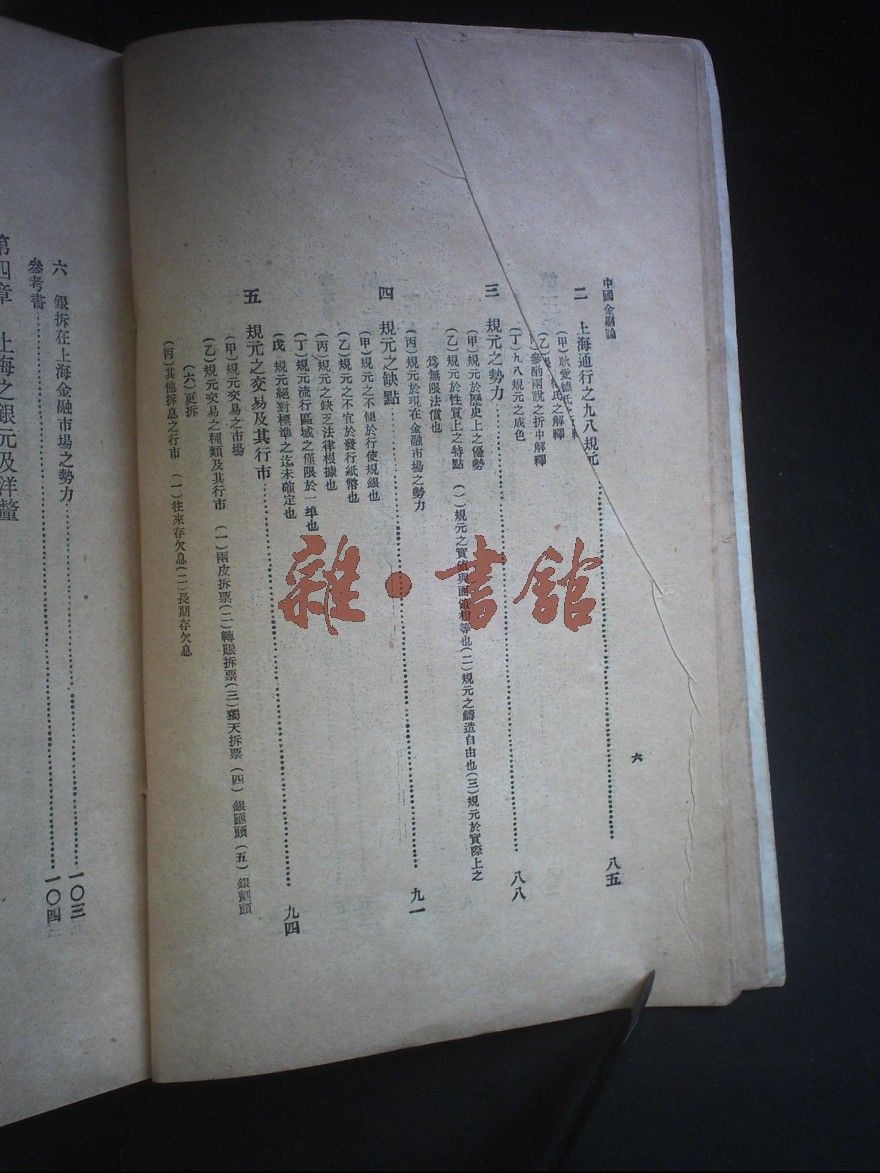 中國金融論
六
二　上海通行之九八規元……八五
(甲)耿愛德氏之解釋
(乙) 氏之解釋
參酌兩說之折中解釋
(丁)九八規元之成色
三　規元之勢力……八八
(甲)規元於歷史上之優勢
(乙)規元於性質上之特點　(一)規元之實值與面值相等也(二)規元之鑄造自由也(三)規元於實際上之
為無限法償也
(丙)規元於現在金融市場之勢力
四　規元之缺點……九一
(甲)規元之不便於行使規銀也
(乙)規元之不宜於發行紙幣也
(丙)規元之缺乏法律根據也
(丁)規元流行區域之僅限於一埠也
(戊)規元絕對標準之迄未確定也
五　規元之交易及其行市……九四
(甲)規元交易之市場
(乙)規元交易之種類及其行市　(一)兩皮拆票(二)轉賬拆票(三)獨天拆票(四)銀匯頭(五)銀劃頭
(六)更拆
(丙)其他拆息之行市　(一)往來存欠息(二)長期存欠息
六　銀拆在上海金融市場之勢力……一〇三
參考書……一〇四
第四章　上海之銀元及洋釐
雜·書館